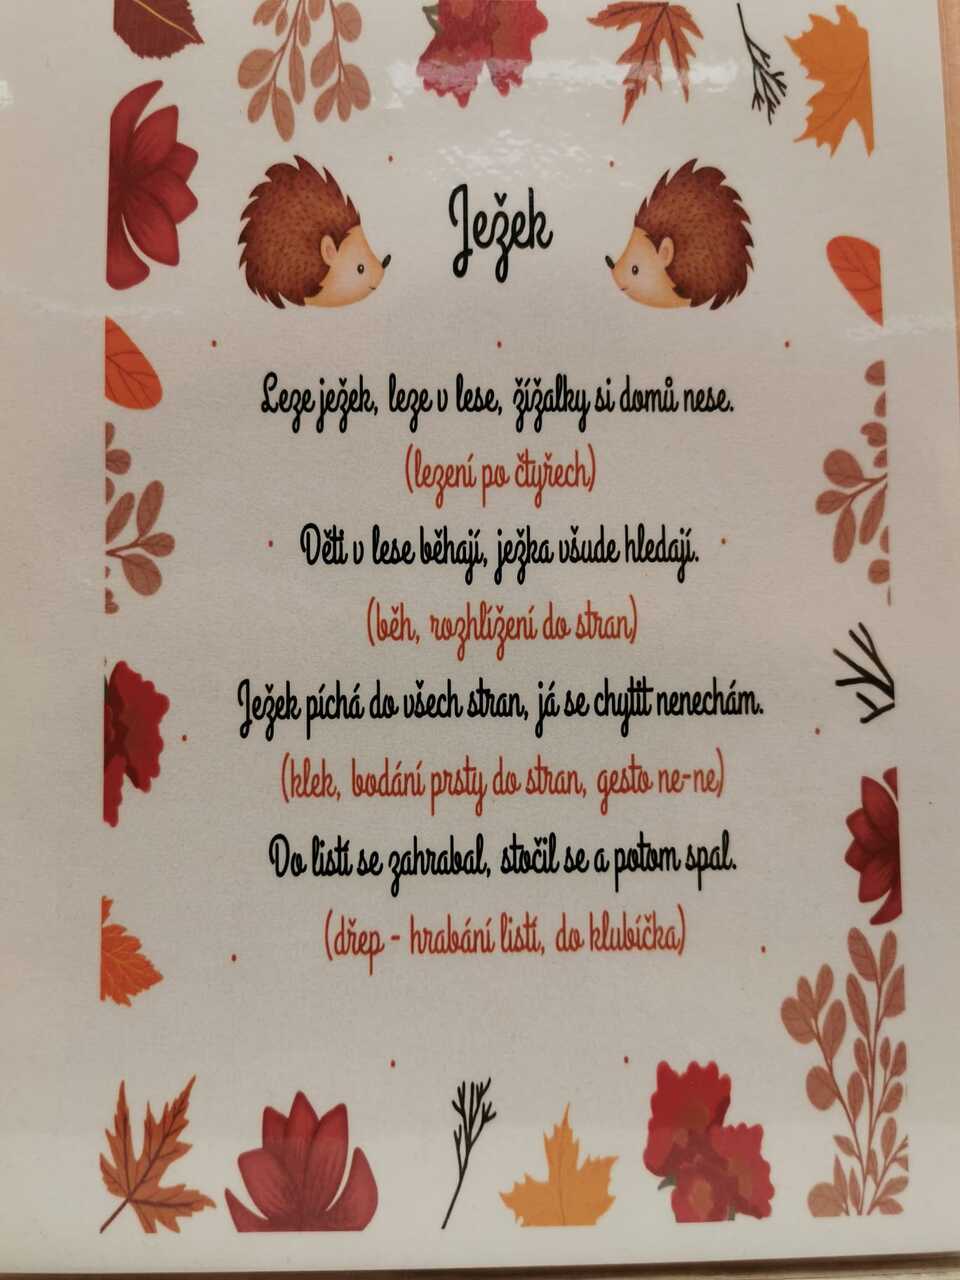 Ježek
Leze ježek, leze v lese, žížalky si domů nese.
(lezení po čtyřech)
Děti v lese běhají, ježka všude hledají.
(běh, rozhlížení do stran)
Ježek píchá do všech stran, já se chytit nenechám.
(klek, bodání prsty do stran, gesto ne-ne)
Do listí se zahrabal, stočil se a potom spal.
(dřep - hrabání listí, do klubíčka)